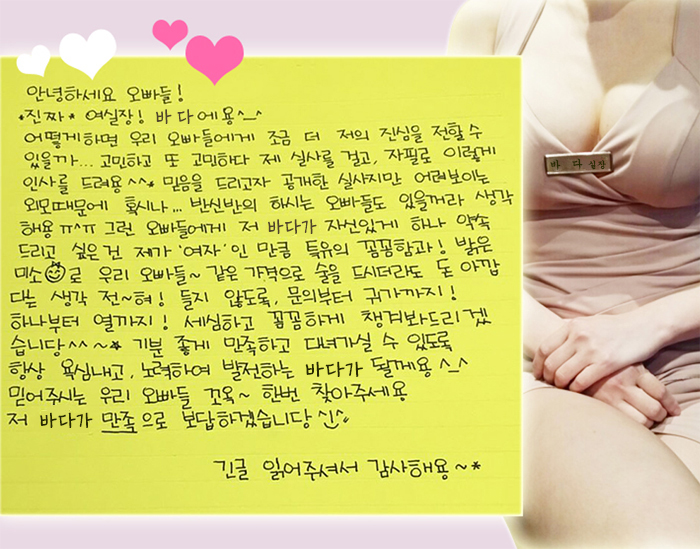 안녕하세요 오빠들!
*진짜* 여실장! 바다에용^_^
어떻게하면 우리 오빠들에게 조금 더 저의 진심을 전할수
있을까... 고민하고 또 고민하다 제 실사를 걸고, 자필로 이렇게
인사를 드려용^^* 믿음을 드리고자 공개한 실사지만 어려보이는
외모때문에 혹시나... 반신반의 하시는 오빠들도 있을꺼라 생각
해용 ㅠ^ㅠ 그런 오빠들에게 저 바다가 자신있게 하나 약속
드리고 싶은건 제가 '여자'인 만큼 특유의 꼼꼼함과! 밝은
미소로 우리 오빠들~ 같은 가격으로 술을 드시더라도 돈 아깝
다는 생각 전~혀! 들지 않도록, 문의부터 귀가까지!
하나부터 열까지! 세심하고 꼼꼼하게 챙겨봐드리겠
습니당^^~* 기분 좋게 만족하고 대녀가실 수 있도록
항상 욕심내고, 노력하여 발전하는 바다가 될께용^_^
믿어주시는 우리 오빠들 꼬옥~ 한번 찾아주세용
저 바다가 만족으로 보답하겠습니당
긴글 읽어주셔서 감사해용~*
바 다 실장